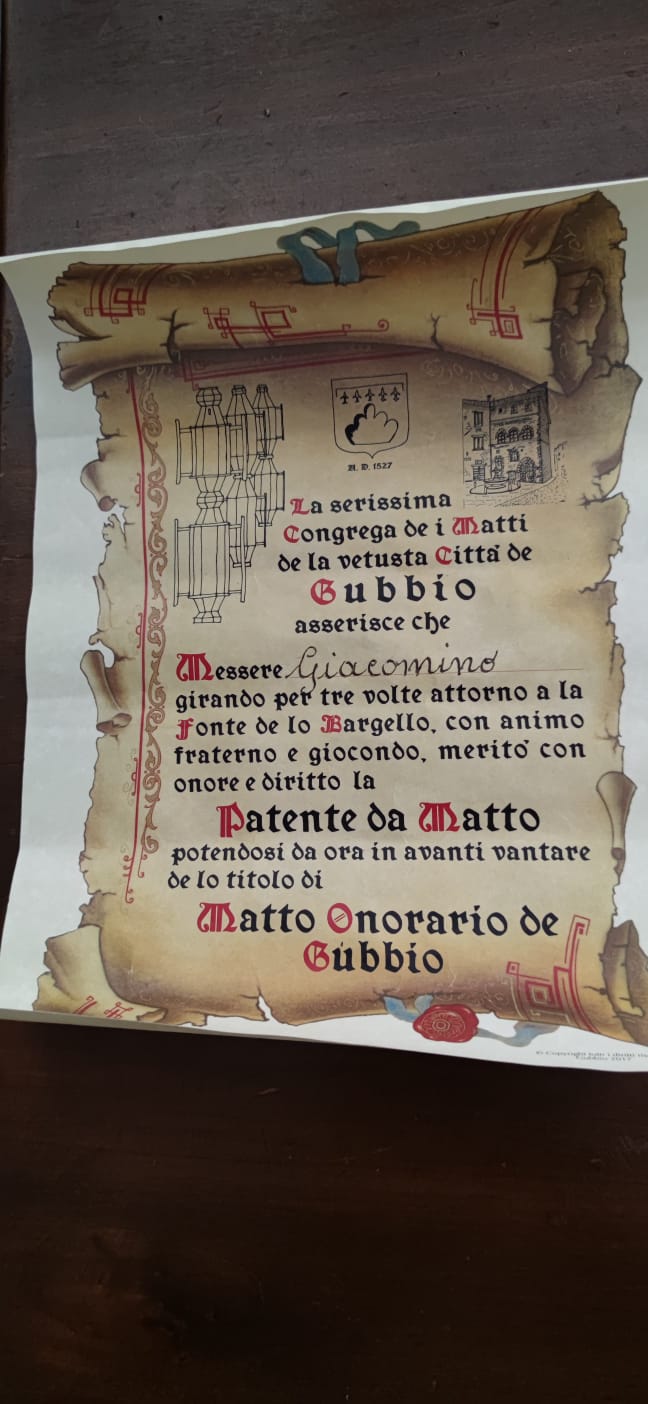 A. D. 1527
La serissima
Congrega de i Matti
de la vetusta Città de
Gubbio
asserisce che
Messere Giacomino
girando per tre volte attorno a la
Fonte de lo Bargello, con animo
fraterno e giocondo, meritò con
onore e diritto la
Patente da Matto
potendosi da ora in avanti vantare
de lo titolo di
Matto Onorario de
Gubbio
© Copyright tutti i diritti
Gubbio 2017